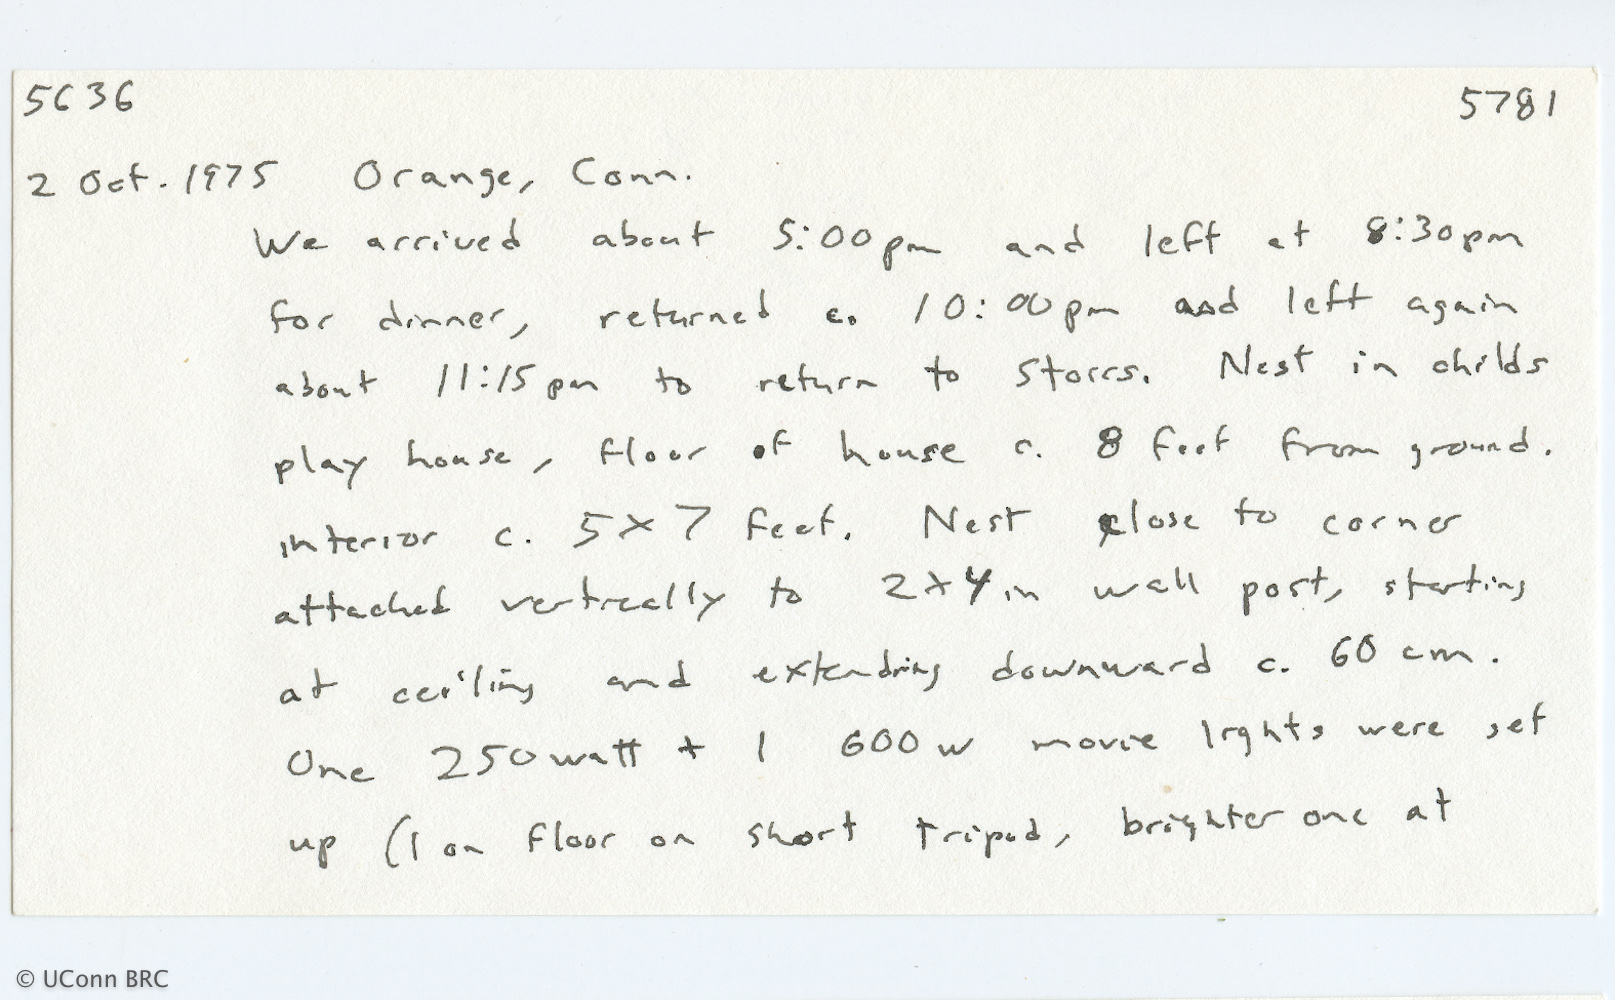 5636 5781
2 Oct. 1975 Orange, Conn.
We arrived about 5:00pm and left at 8:30pm
for dinner, returned c. 10:00pm and left again
about 11:15pm to return to Storrs. Nest in childs
play house, floor of house c. 8 feet from ground.
interior c. 5x7 feet. Nest close to corner
attached vertically to 2x4in wall post, starting
at ceiling and extending downward c. 60 cm.
One 250watt + 1 600w movie lights were set
up (1 on floor on short tripod, brighter one at
© UConn BRC